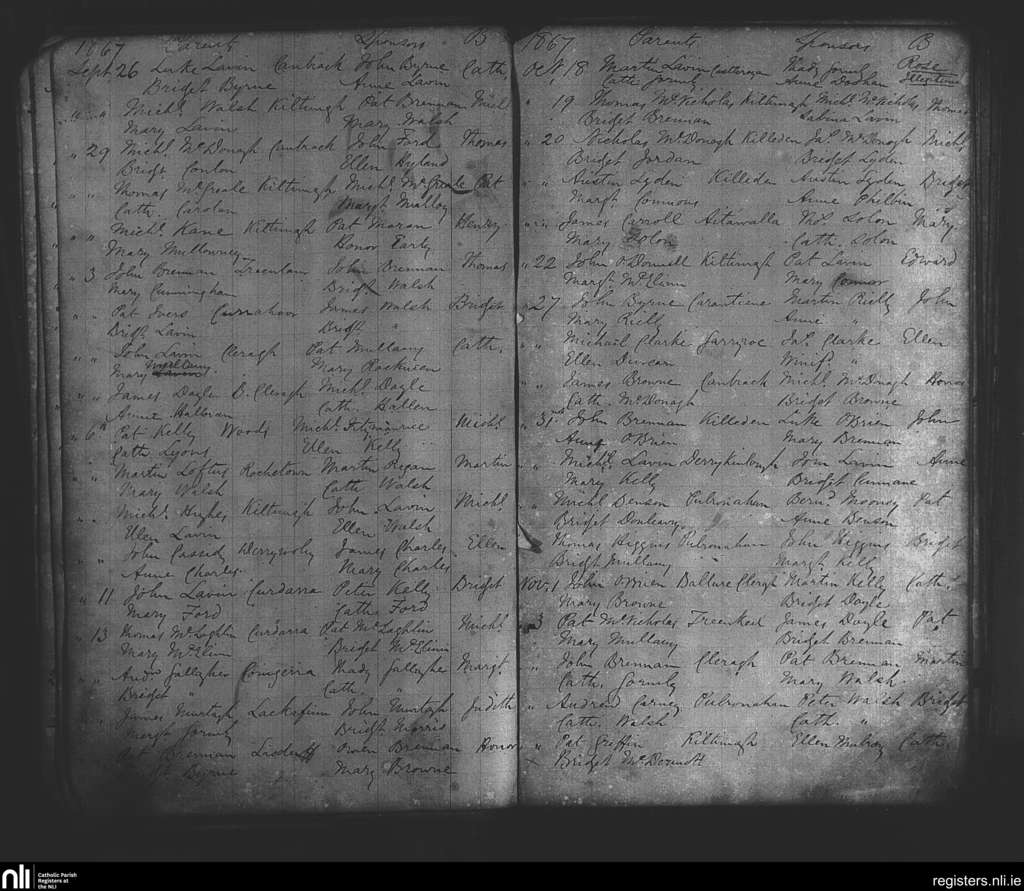 1867 Parents Sponsors B
Sept 26 Luke Lavin Canbrack John Byrne Cath.
Bridget Byrne Anne Lavin
" " Michl. Walsh Kiltimgh Pat Brennan Michl
Mary Lavin Mary Walsh
" 29 Michl. McDonagh Canbrack John Ford Thomas
Bridgt Conlon Ellen Hyland
" " Thomas McGreale Kiltimagh Michl. McGreale Pat
Cath. Carolan Margt Mulloy
" " Michl. Kane Kiltimgh Pat Maran Henry
Mary Mullowney Honor Early
" 3 John Brennan Treenlam John Brennan Thomas
Mary Cunningham Bridgt Walsh
" " Pat Ivers Currahoor James Walsh Bridget
Bridgt. Lavin Bridgt "
" " John Lavin Cleragh Pat Mullany Cath.
Mary Mullany
" " James Doyle B. Cleragh Michl. Doyle
Anne Halloran Cath. Hallen
" 6th Pat Kelly Woods Michl. Fitzmaurice Michl
Cath. Lyons Ellen Kelly
" " Martin Loftus Rochetown Martin Regan Martin
Mary Walsh Cath Walsh
" " Michl. Hughes Kiltimagh John Lavin Michl.
Ellen Lavin Ellen Walsh
" " John Cassidy James Charles Ellen
Anne Charles Mary Charles
" 11 John Lavin Curdarra Peter Kelly Bridget
Mary Ford Cath Ford
" 13 Thomas McLoghlin Curdarra Pat McLoghlin Michl.
Mary McElinn Bridget McElinn
" Andw Gallagher Thady Gallagher Margt.
Bridget " Cath. "
James Murtagh John Murtagh Judith
Margt Gormly Bridgt Morris
Pat Brennan Owen Brennan Honor
Byrne Mary Browne
1867 Parents Sponsors B
Oct 18 Martin Lavin Thady Gormly Rose
Cath Gormly Anne
" 19 Thomas McNicholas Kiltimagh Michl. McNicholas Thomas
Bridget Brennan Sabina Lavin
" 20 Nicholas McDonogh Killeden Jas. McDonogh Michl.
Bridget Jordan Bridget Lyden
" " Austin Lyden Killeden Austin Lyden Bridget
Margt Commons Anne Philbin
" " James Carroll Aitawalla Thos Solon Mary
Mary Solon Cath. Solon
" 22 John O'Donnell Kiltimgh Pat Lavin Edward
Margt McElinn Mary Connor
" 27 John Byrne Martin Rielly John
Mary Rielly Anne "
" " Michail Clarke Garryroe Jas. Clarke Ellen
Ellen Duncan Winifd "
" " James Browne Canbrack Michl. McDonagh Honor
Cath. McDonagh Bridget Browne
" 31st John Brennan Killeden Luke O'Brien John
Anne O'Brien Mary Brennan
" " Michl. Lavin Derrykinlough John Lavin Anne
Mary Kelly Bridget Cunnane
" " Michl Denson Pulronahan Bernd. Mooney Pat
Bridget Donleavy Anne Denson
Thomas Higgins Pulronahan John Higgins Bridget
Bridgt Mullany Margt. Kelly
Nov. 1 John O'Brien Ballure Clergh Martin Kelly Cath.
Mary Browne Bridget Doyle
" 3 Pat McNicholas Treenkeel James Doyle Pat
Mary Mullany Bridget Brennan
" " John Brennan Cleragh Pat Brennan Martin
Cath. Gormly Mary Walsh
" Andrew Carney Pulronahan Peter Walsh Bridget
Cath. Walsh Cath. "
" Pat Griffin Kiltimagh Ellen Mulroy Cath
x Bridget McDermott
nli Catholic Parish
Registers at
the NLI
registers.nli.ie